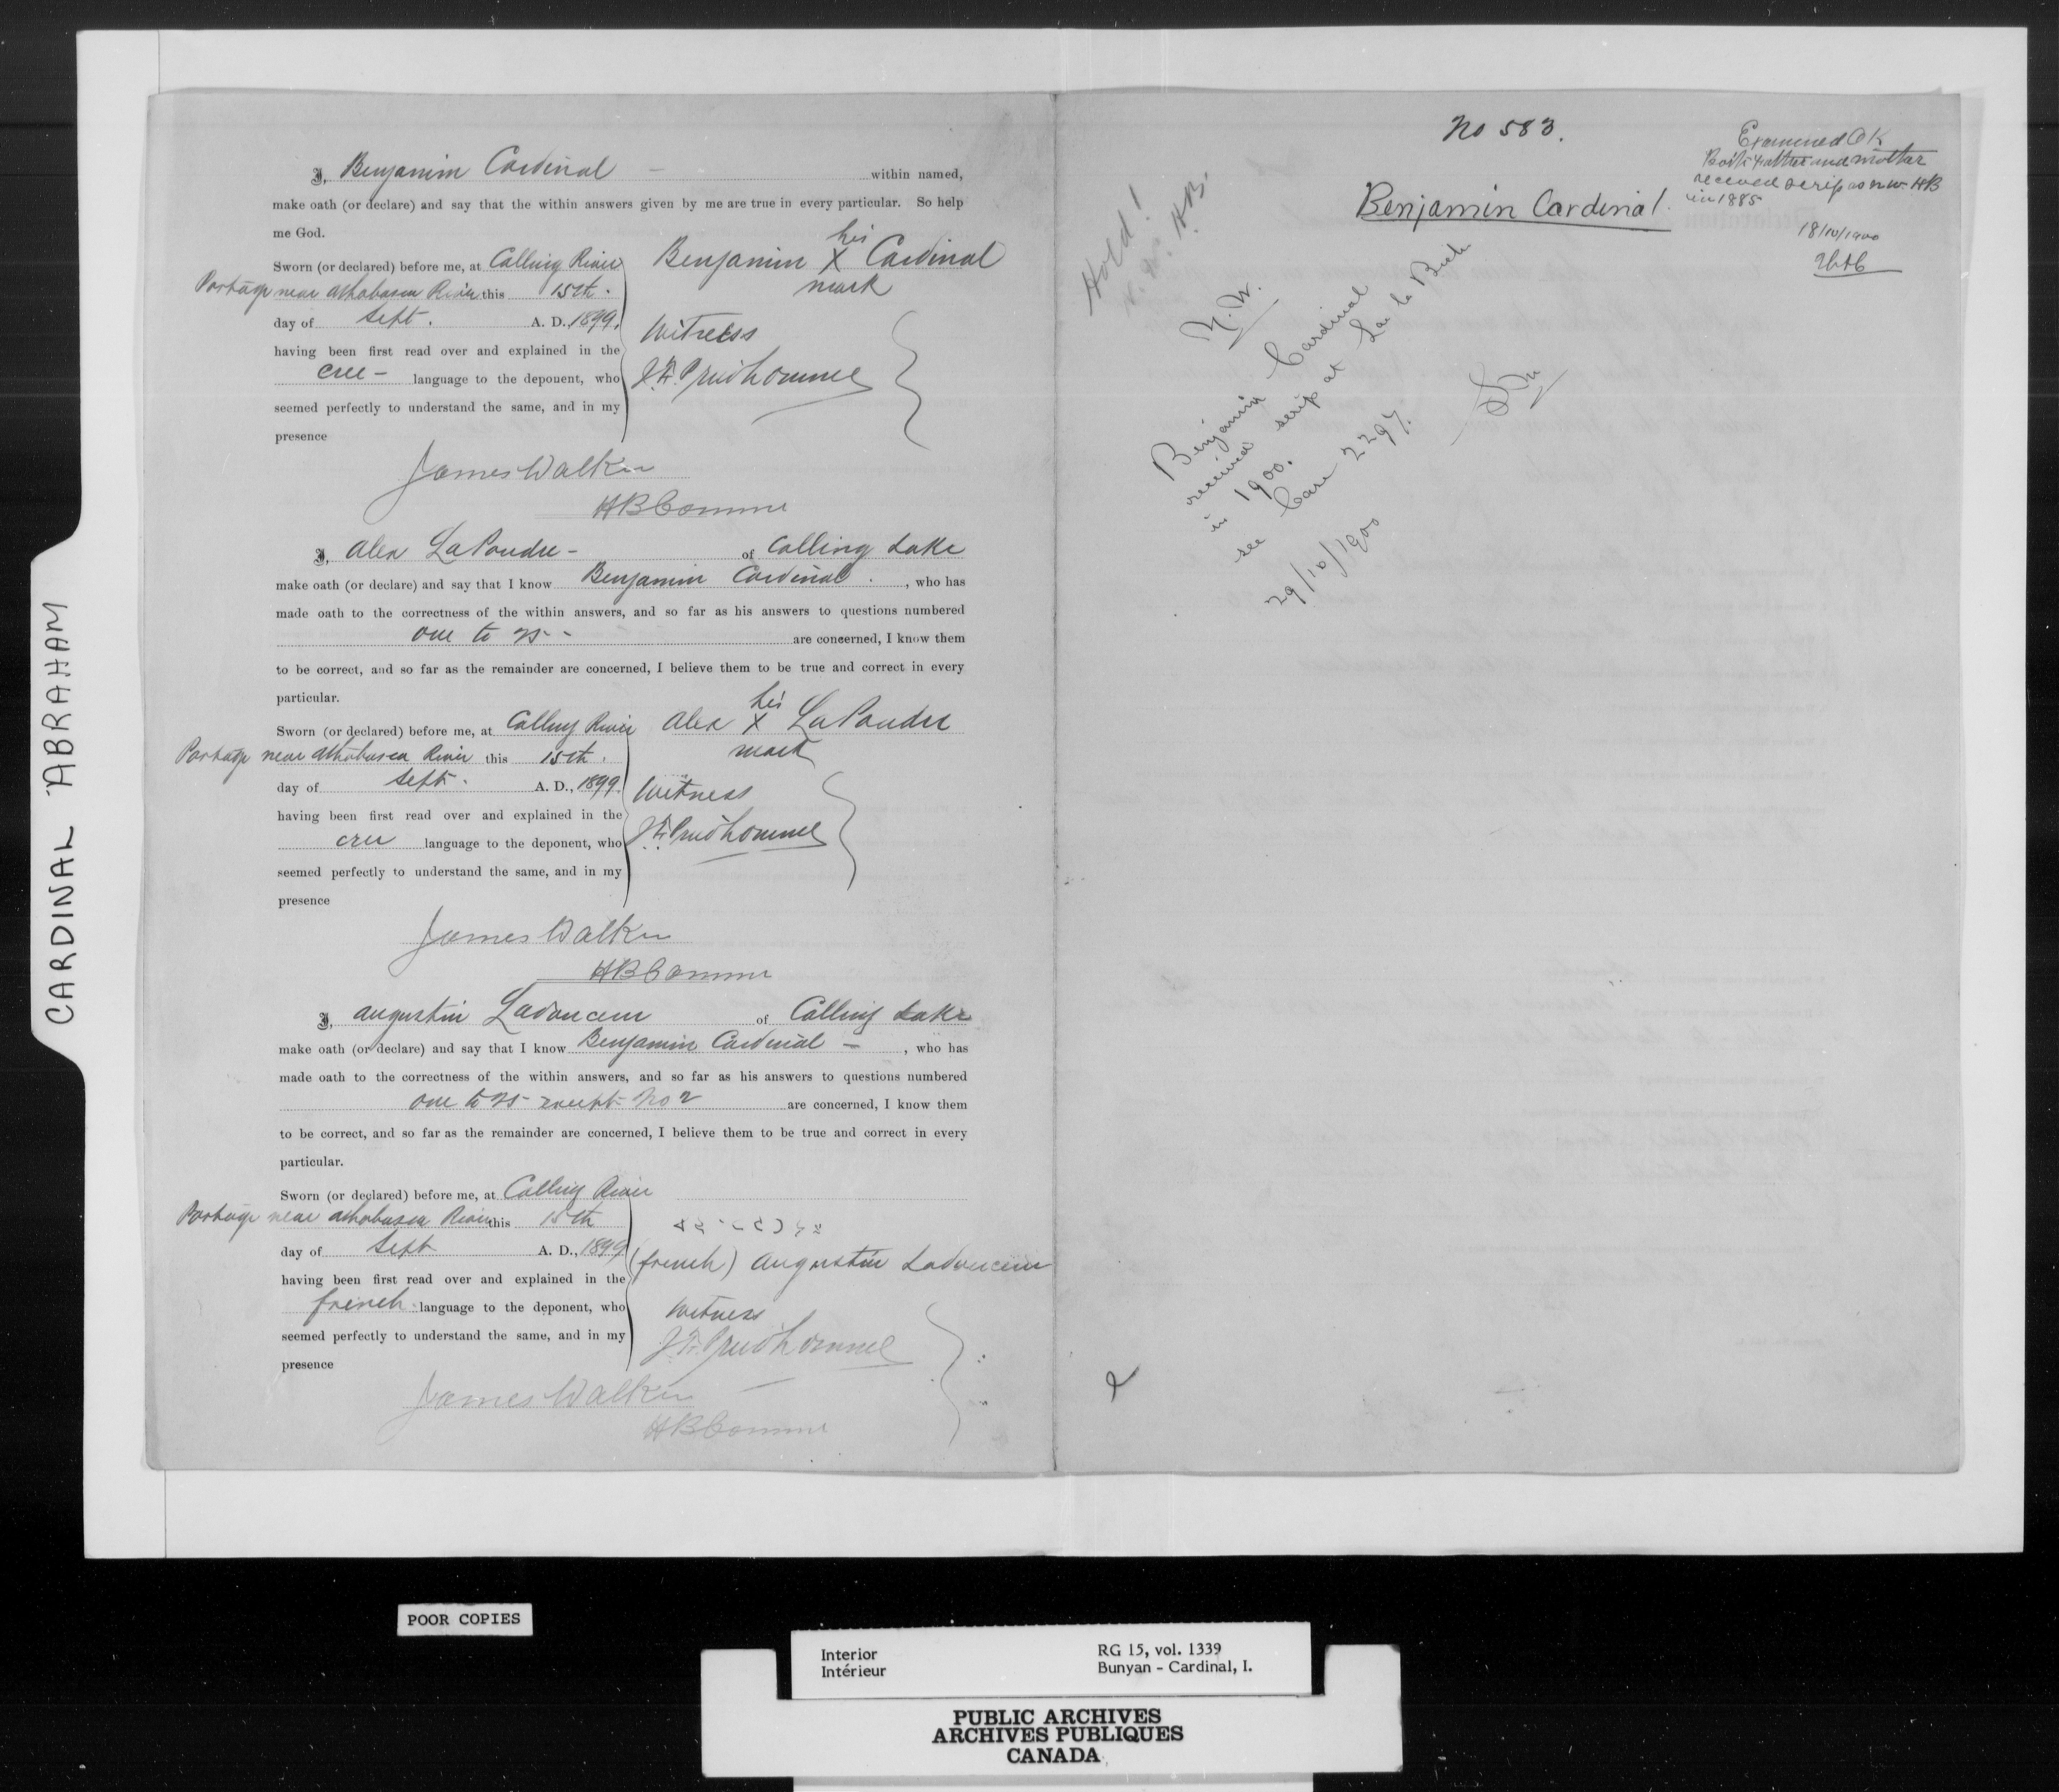 I, Benjamin Cardinal — within named,
make oath (or declare) and say that the within answers given by me are true in every particular. So help
me God.
Sworn (or declared) before me, at Calling River
Portage near Athabasca River this 15th.
day of Sept. A. D. 1899.
having been first read over and explained in the
cree - language to the deponent, who
seemed perfectly to understand the same, and in my
presence
Benjamin his X mark Cardinal
Witness
J. F. Prudhomme
James Walker
HB Comme
I, Alex LaPoudre - of Calling Lake
make oath (or declare) and say that I know Benjamin Cardinal . , who has
made oath to the correctness of the within answers, and so far as his answers to questions numbered
one to 25 - are concerned, I know them
to be correct, and so far as the remainder are concerned, I believe them to be true and correct in every
particular.
Sworn (or declared) before me, at Calling River
Portage near Athabasca River this 15th.
day of Sept. A. D., 1899
having been first read over and explained in the
cree language to the deponent, who
seemed perfectly to understand the same, and in my
presence
Alex his X mark LaPoudre
Witness
J. F. Prudhomme
James Walker
HB Comme
I, Augustin Ladouceur of Calling Lake
make oath (or declare) and say that I know Benjamin Cardinal — , who has
made oath to the correctness of the within answers, and so far as his answers to questions numbered
one to 25 except No 2 are concerned, I know them
to be correct, and so far as the remainder are concerned, I believe them to be true and correct in every
particular.
Sworn (or declared) before me, at Calling River
Portage near Athabasca River this 15th
day of Sept A. D., 1899
having been first read over and explained in the
french language to the deponent, who
seemed perfectly to understand the same, and in my
presence
(french) Augustin Ladouceur
Witness
J. F. Prudhomme
James Walker
HB Comme
No 583.
Benjamin Cardinal.
Examined OK
Both father and mother
received scrip as N.W. HB
in 1885
18/10/1900
Hold!
N. W. H.B.
N. W.
Benjamin Cardinal
received scrip at Lac la Biche
in 1900.
see Case 2297.
29/10/1900
CARDINAL ABRAHAM
POOR COPIES
Interior
Intérieur
RG 15, vol. 1339
Bunyan - Cardinal, I.
PUBLIC ARCHIVES
ARCHIVES PUBLIQUES
CANADA